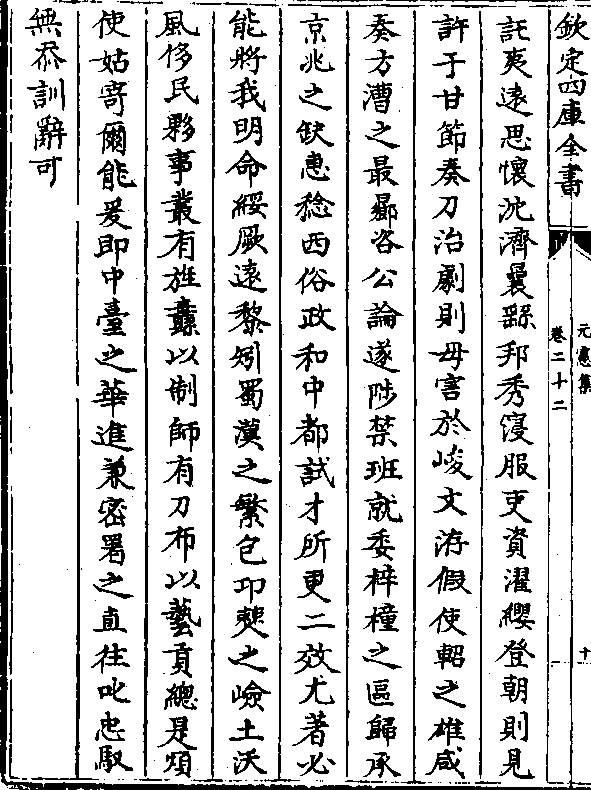 欽定四庫全書
元憲集
卷二十二
十
託夷遠思懷沈濟曩繇邦秀寖服吏資濯纓登朝則見
許于甘節奏刀治劇則毋害於峻文洊假使軺之雄咸
奏方漕之最鄙咨公論遂陟禁班就委梓橦之區歸承
京兆之缺惠稔西俗政和中都試才所更二效尤著必
能將我明命綏厥遠黎矧蜀漢之繁包卭僰之嶮土沃
風侈民夥事叢有旌纛以制師有刀布以藝貢總是煩
使姑寄爾能爰即中臺之華進兼密署之直往叱忠馭
無忝訓辭可